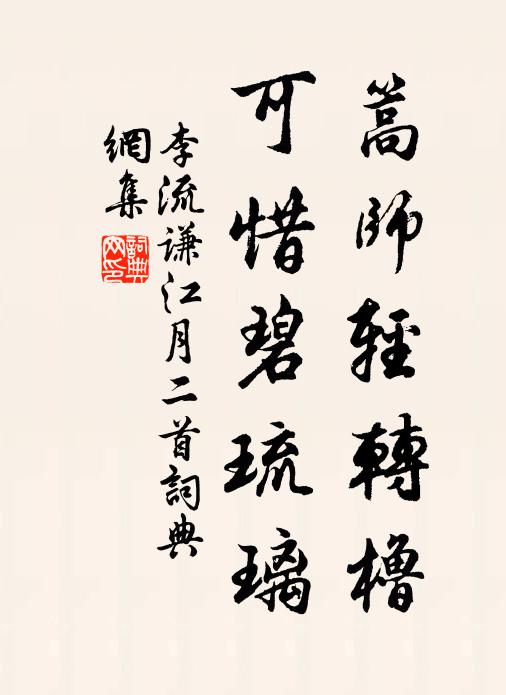 篙師輕轉櫓
可惜碧琉璃
李流謙江月二首詞典
網集
詞典網印